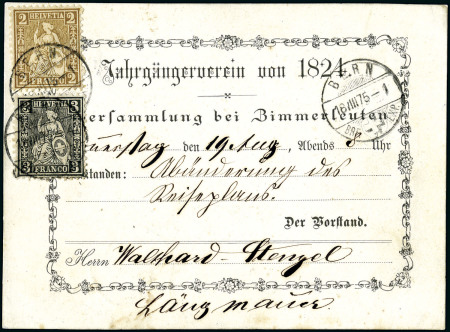 2 HELVETIA 2
FRANCO
3 HELVETIA 3
FRANCO
BERN
18 VIII 75 - 1
BRF. EXP.
Jahrgängerverein von 1824.
ersammlung bei Zimmerleuten
den 19 Aug, Abends 8 Uhr
tanden: Abänderung des
Reiseplans.
Der Vorstand.
Herrn Walthard-Stengel
Längmauer